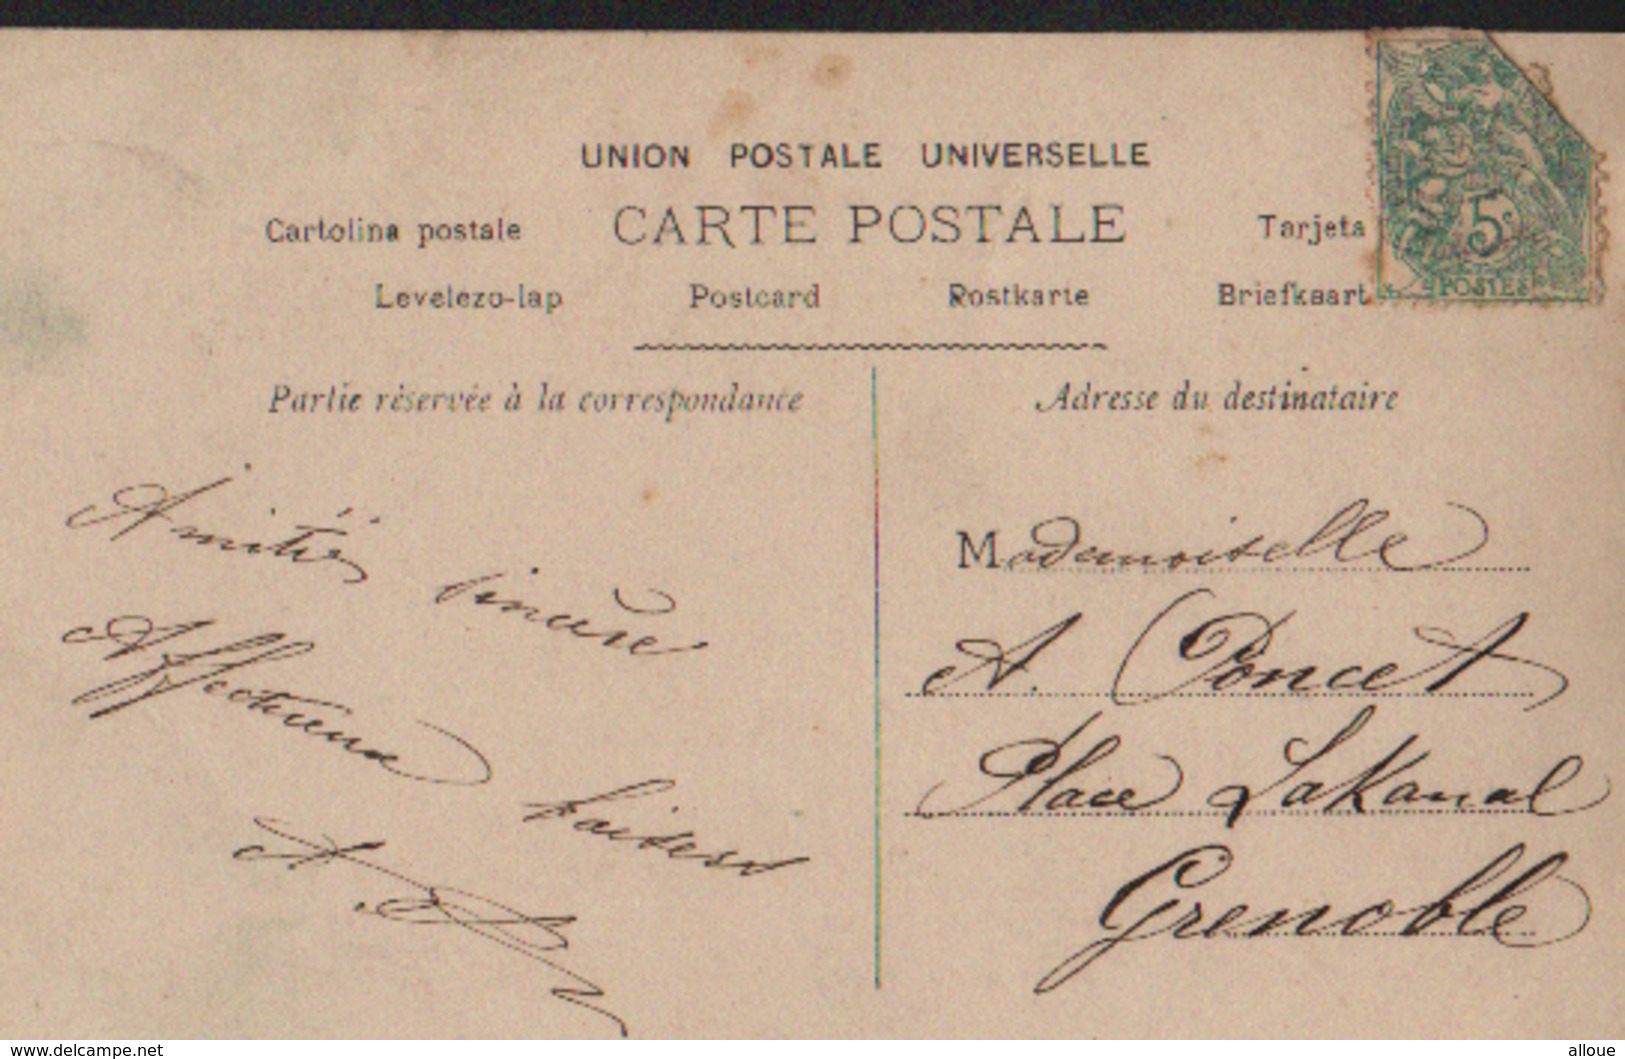 UNION POSTALE UNIVERSELLE
Cartolina postale CARTE POSTALE Tarjeta
Levelezo-lap Postcard Rostkarte Briefkaart
5c
POSTES
Partie réservée à la correspondance
Amitiés sincère
Affectueux baisers
A.
Adresse du destinataire
Mademoiselle
A. Poncet
Place LaKanal
Grenoble
www.delcampe.net
alloue